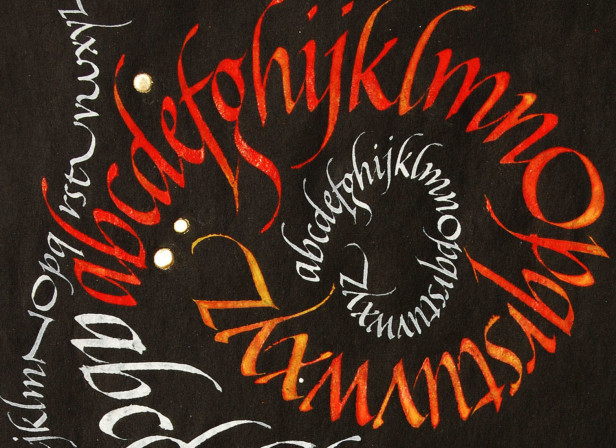 abcdefghijklmnopqrstuvwxyz
abcdefghijklmnopqrstuvwxyz
jklmnopq rstuvwxyz
abc